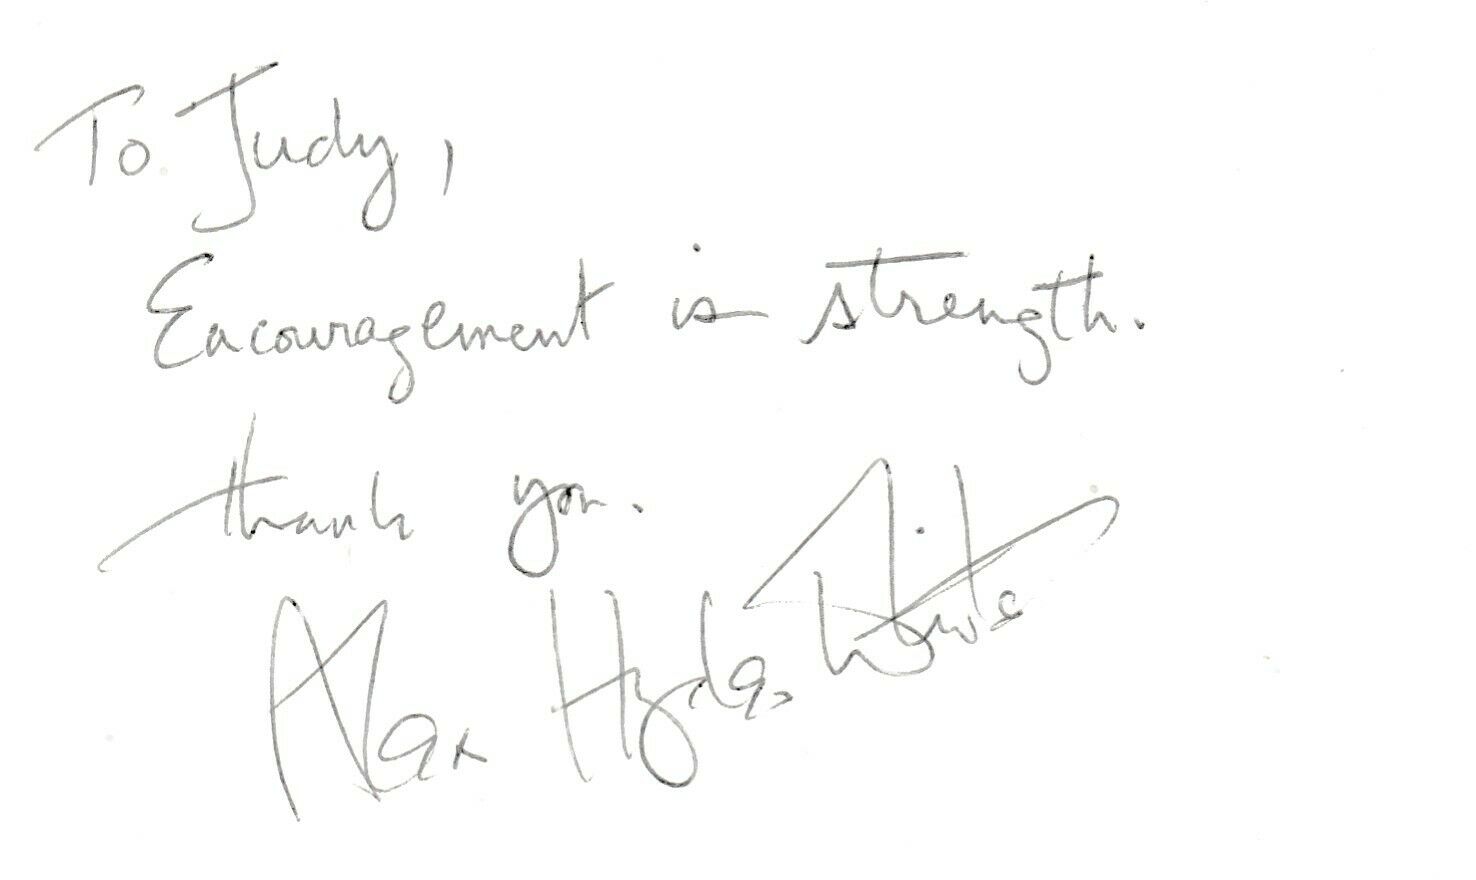 To Judy,
Encouragement is strength.
thank you.
Alex Hyde-White